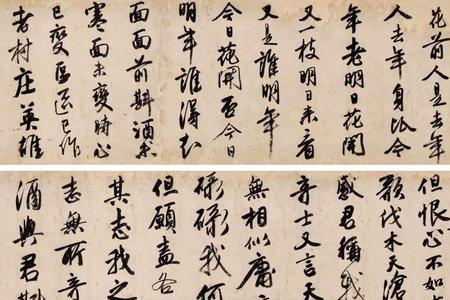 花前人是去年
人去年身比今
年老明日花開
又一枝明日来看
又是誰明年
今日花開否今日
明年誰得知
面面前斟酒未
寒面未變時心
已變區區已作
老村庄英雄
但恨心不如
歌伐木天滄
感君稱我
奇士又言天
無相似庸
碌碌我何
但願盡各
其志我之
志無所奇
酒與君斟